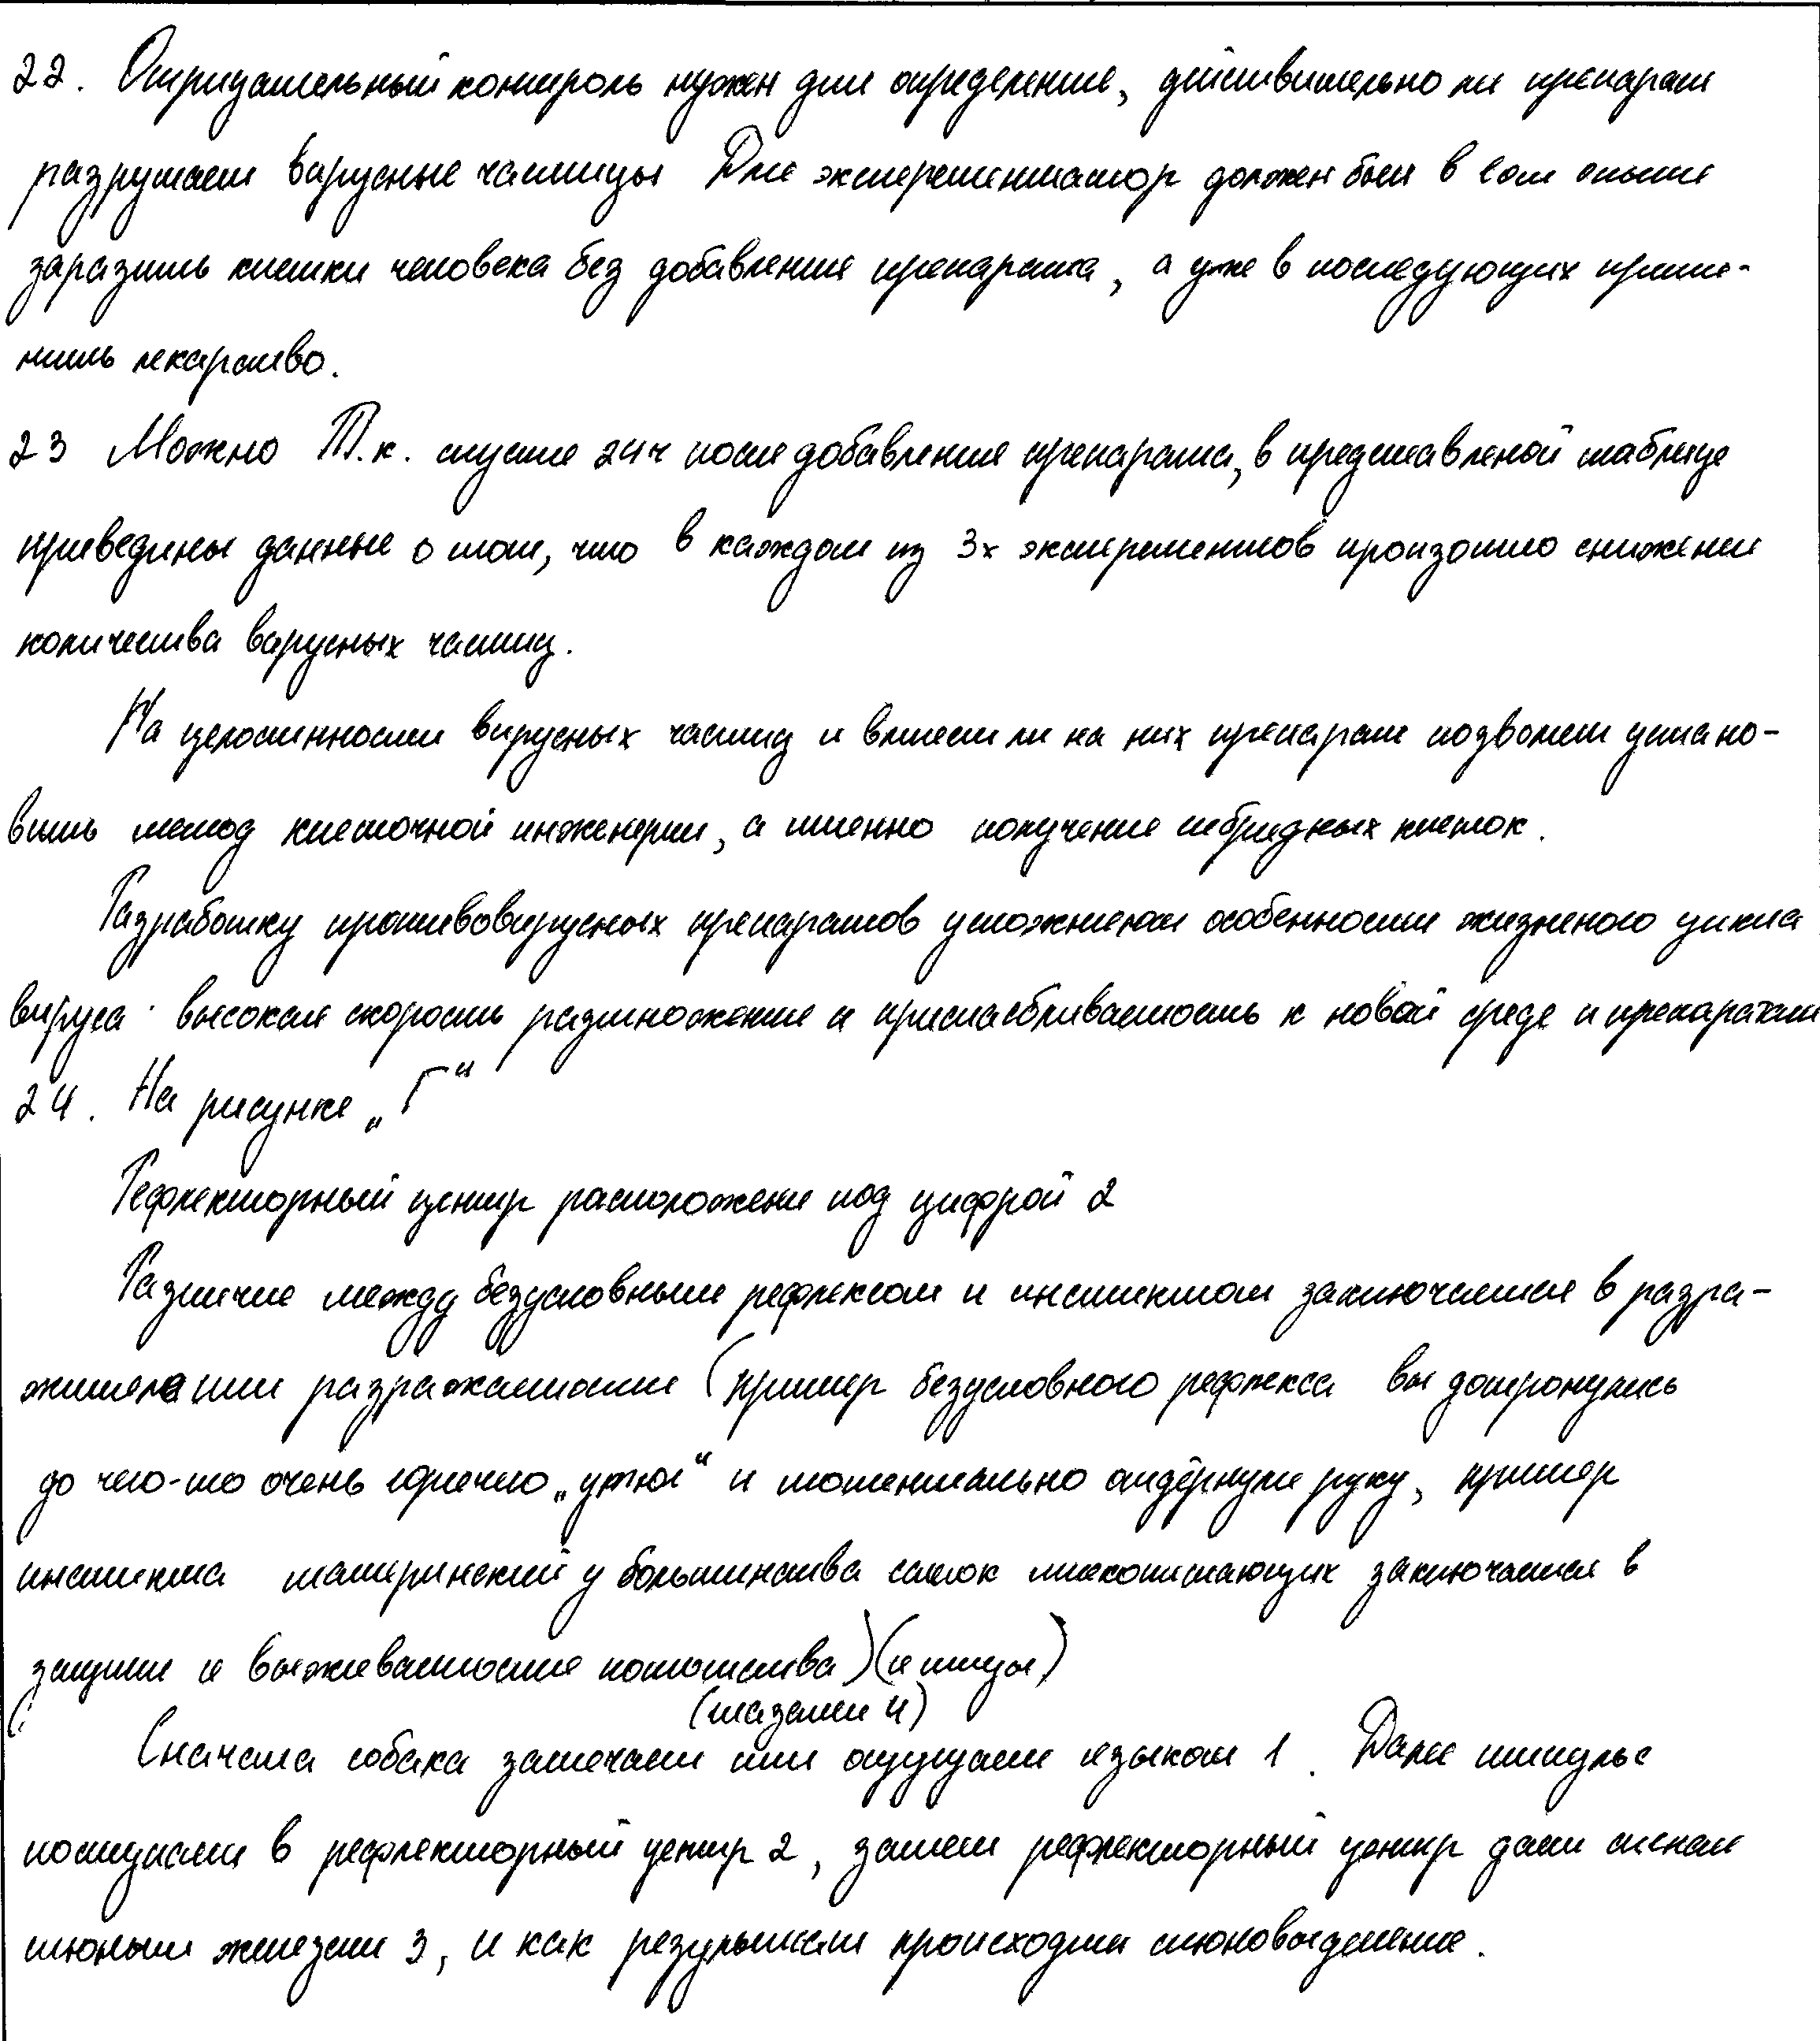 22. Отрицательный контроль нужен для определение, действительно ли препарат
разрушает варусные частицы Для эксперементатор должен был в 1ом опыте
заразить клетки человека без добавления препарата, а уже в последующих приме-
нить лекарство.
23 Можно Т.к. спустя 24ч после добавления препарата, в представленой таблице
приведины данные о том, что в каждом из 3х экспрементов произошло снижение
количества варусных частиц.
На целостинности вирусных частиц и влияет ли на них препарат позволяет устано-
вить метод клеточной инженерии, а именно получение гибридных клеток.
Разработку противовирусных препаратов усложняют особенности жизненого цикла
вируса: высокая скорость размножение и приспасбливаемость к новой среде и препаратам
24. На рисунке „Г“
Рефлекторный центр расположене под цифрой 2
Различие между безусловным рефлексом и инстинктом заключается в разра-
жителе или разражатости (пример безусловного рефлекса вы дотронулись
до чего-то очень горячего „утюг“ и моментально отдёрнули руку, пример
инстинкта материнский у большинства самок млекопитающих заключается в
защите и выживаемостие потомства) (и птицы)
(глазами 4)
Сначала собака замечает или ощущает языком 1. Далее импульс
поступает в рефлекторный центр 2, затем рефлекторный центр даёт сигнал
слюным железам 3, и как результат происходит слюновыделение.